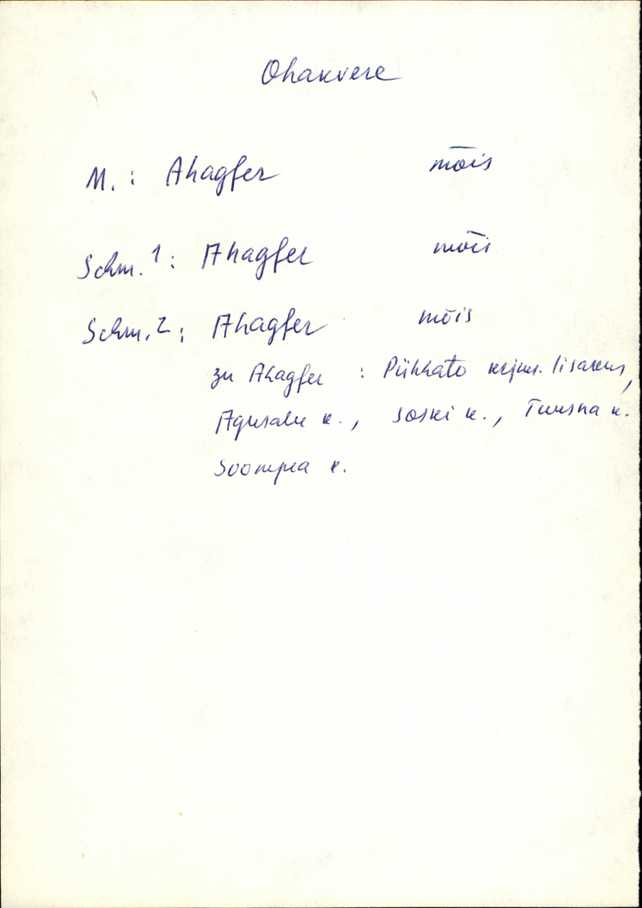 Ohakvere
M.: Ahagfer mõis
Schm. 1: Ahagfer mõis
Schm. 2: Ahagfer mõis
zu Ahagfer : Pühhato lisakus,
Agusalu k., Soski k., Tuusna k.
Soompea k.